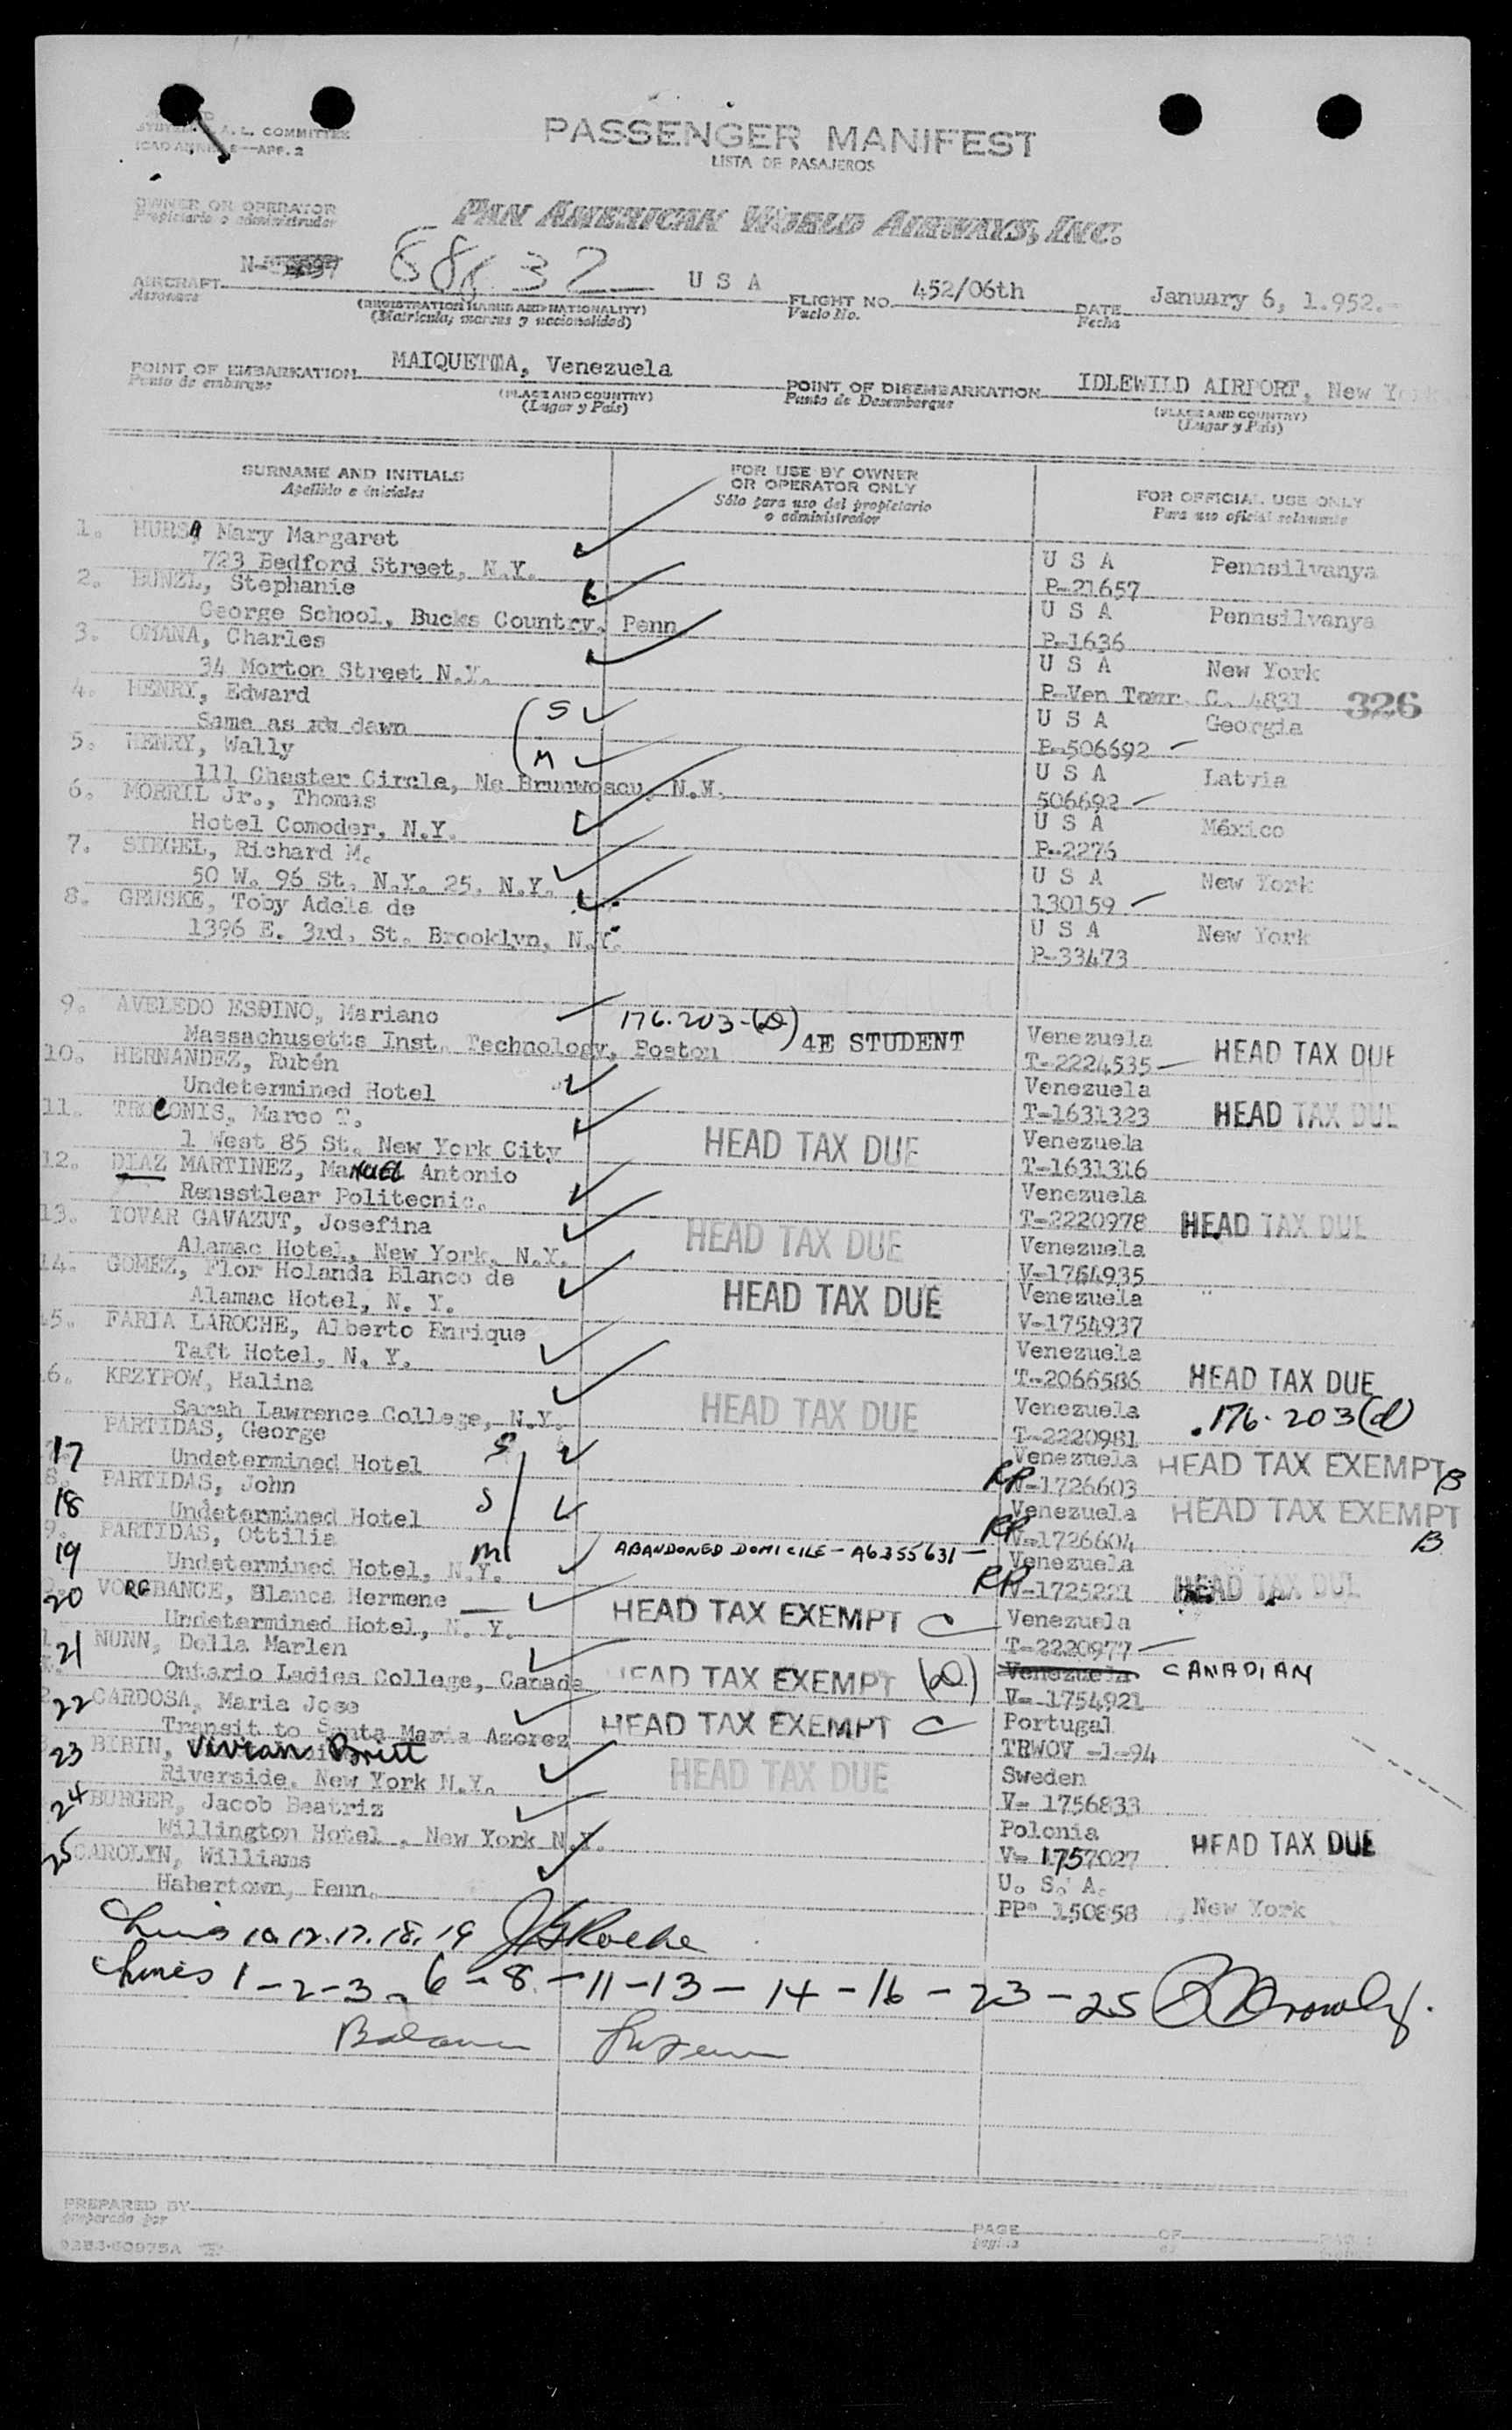 A. L. COMMITTEE
APP. 2
PASSENGER MANIFEST
LISTA DE PASAJEROS
OWNER OR OPERATOR
Propietario o administrador
PAN AMERICAN WORLD AIRWAYS, INC.
AIRCRAFT
Aeronave
U S A
(REGISTRATION MARKS AND NATIONALITY)
(Matricula, marcas y nacionalidad)
FLIGHT NO. 452/06th
Vuelo No.
DATE January 6, 1.952.-
Fecha
POINT OF EMBARKATION MAIQUETIA, Venezuela
Punto de embarque
(PLACE AND COUNTRY)
(Lugar y País)
POINT OF DISEMBARKATION IDLEWILD AIRPORT, New York
Punto de Desembarque
(PLACE AND COUNTRY)
(Lugar y País)
SURNAME AND INITIALS
Apellido e iniciales
FOR USE BY OWNER
OR OPERATOR ONLY
Sólo para uso del propietario
o administrador
FOR OFFICIAL USE ONLY
Para uso oficial solamente
1. Mary Margaret
723 Bedford Street, N.Y.
U S A Pennsilvanya
P-21657
2. BUNZL, Stephanie
George School, Bucks Country, Penn
U S A Pennsilvanya
P-1636
3. OMANA, Charles
34 Morton Street N.Y.
U S A New York
P-Ven Tour. C. 4831 326
4. HENRY, Edward
Same as dawn
S
U S A Georgia
P-506692
5. HENRY, Wally
111 Chester Circle, Ne
M
U S A Latvia
506692
6. MORRIL Jr., Thomas
Hotel Comoder, N.Y.
U S A México
P-2276
7. SIEGEL, Richard M.
50 W. 96 St. N.Y. 25, N.Y.
U S A New York
130159
8. GRUSKE, Toby Adela de
1396 E. 3rd. St. Brooklyn, N.Y.
U S A New York
P-33473
9. AVELEDO ESPINO, Mariano
Massachusetts Inst. Technology, Boston
176.203-(D) 4E STUDENT
Venezuela
T-2224535 HEAD TAX DUE
10. HERNANDEZ, Rubén
Undetermined Hotel
Venezuela
T-1631323 HEAD TAX DUE
11. TROCONIS, Marco T.
1 West 85 St. New York City
HEAD TAX DUE
Venezuela
T-1631316
12. DIAZ MARTINEZ, Manuel Antonio
Rensstlear Politecnic.
Venezuela
T-2220978 HEAD TAX DUE
13. TOVAR GAVAZUT, Josefina
Alamac Hotel, New York, N.Y.
HEAD TAX DUE
Venezuela
V-1754935
14. GOMEZ, Flor Holanda Blanco de
Alamac Hotel, N. Y.
HEAD TAX DUE
Venezuela
V-1754937
15. FARIA LAROCHE, Alberto Enrique
Taft Hotel, N. Y.
Venezuela
T-2066586 HEAD TAX DUE
16. KRZYPOW, Halina
Sarah Lawrence College, N.Y.
HEAD TAX DUE
Venezuela 176.203(d)
T-2220981
17 PARTIDAS, George
Undetermined Hotel
S
Venezuela HEAD TAX EXEMPT B
RP V-1726603
18 PARTIDAS, John
Undetermined Hotel
S
Venezuela HEAD TAX EXEMPT
RP V-1726604 B
19 PARTIDAS, Ottilia
Undetermined Hotel, N.Y.
M
ABANDONED DOMICILE - A6355631 -
Venezuela
RP V-1725221 HEAD TAX DUE
20 VORGBANCE, Blanca Hermene
Undetermined Hotel, N. Y.
HEAD TAX EXEMPT C
Venezuela
T-2220977
21 NUNN, Della Marlen
Ontario Ladies College, Canada
HEAD TAX EXEMPT (D)
Venezuela CANADIAN
V- 1754921
22 CARDOSA, Maria Jose
Transit to Santa Maria Azores
HEAD TAX EXEMPT C
Portugal
TRWOV -1-94
23 BIRIN, Vivian Britt
Riverside, New York N.Y.
HEAD TAX DUE
Sweden
V- 1756833
24 BURGER, Jacob Beatriz
Willington Hotel, New York N.Y.
Polonia
V- 1757027 HEAD TAX DUE
25 CAROLYN, Williams
Habertown, Penn.
U. S. A.
PP- 150858, New York
Lines 10.12.17.18.19
Lines 1-2-3-6-8-11-13-14-16-23-25
Balance
PREPARED BY
preparado por
PAGE
pagina
OF